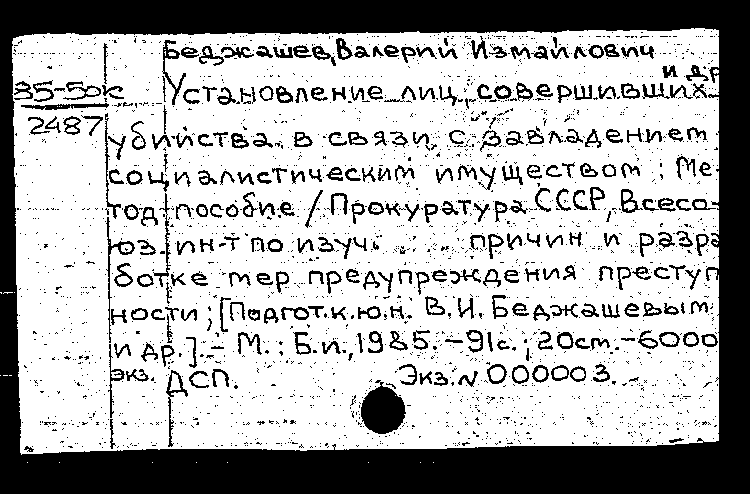 Беджашев, Валерий Измайлович
и др
85-50к
Установление лиц, совершивших
2487
убийства в связи с завладением
социалистическим имуществом : Ме-
тод. пособие / Прокуратура СССР, Всесо-
юз. ин-т по изуч. причин и разра
ботке мер предупреждения преступ
ности ; [Подгот. к.ю.н. В.И. Беджашевым
и др.]. - М. : Б.и., 1985. - 91с. ; 20см. - 6000
экз. ДСП. Экз. N 000003.